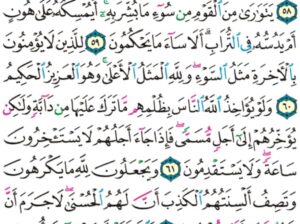 ٥٨ يَتَوَٰرَىٰ مِنَ ٱلْقَوْمِ مِن سُوٓءِ مَا بُشِّرَ بِهِۦٓ ۚ أَيُمْسِكُهُۥ عَلَىٰ هُونٍ
أَمْ يَدُسُّهُۥ فِى ٱلتُّرَابِ ۗ أَلَا سَآءَ مَا يَحْكُمُونَ ٥٩ لِلَّذِينَ لَا يُؤْمِنُونَ
بِٱلْءَاخِرَةِ مَثَلُ ٱلسَّوْءِ ۖ وَلِلَّهِ ٱلْمَثَلُ ٱلْأَعْلَىٰ ۚ وَهُوَ ٱلْعَزِيزُ ٱلْحَكِيمُ
٦٠ وَلَوْ يُؤَاخِذُ ٱللَّهُ ٱلنَّاسَ بِظُلْمِهِم مَّا تَرَكَ عَلَيْهَا مِن دَآبَّةٍ وَلَٰكِن
يُؤَخِّرُهُمْ إِلَىٰٓ أَجَلٍ مُّسَمًّى ۖ فَإِذَا جَآءَ أَجَلُهُمْ لَا يَسْتَـْٔخِرُونَ
سَاعَةً ۖ وَلَا يَسْتَقْدِمُونَ ٦١ وَيَجْعَلُونَ لِلَّهِ مَا يَكْرَهُونَ
وَتَصِفُ أَلْسِنَتُهُمُ ٱلْكَذِبَ أَنَّ لَهُمُ ٱلْحُسْنَىٰ ۖ لَا جَرَمَ أَنَّ